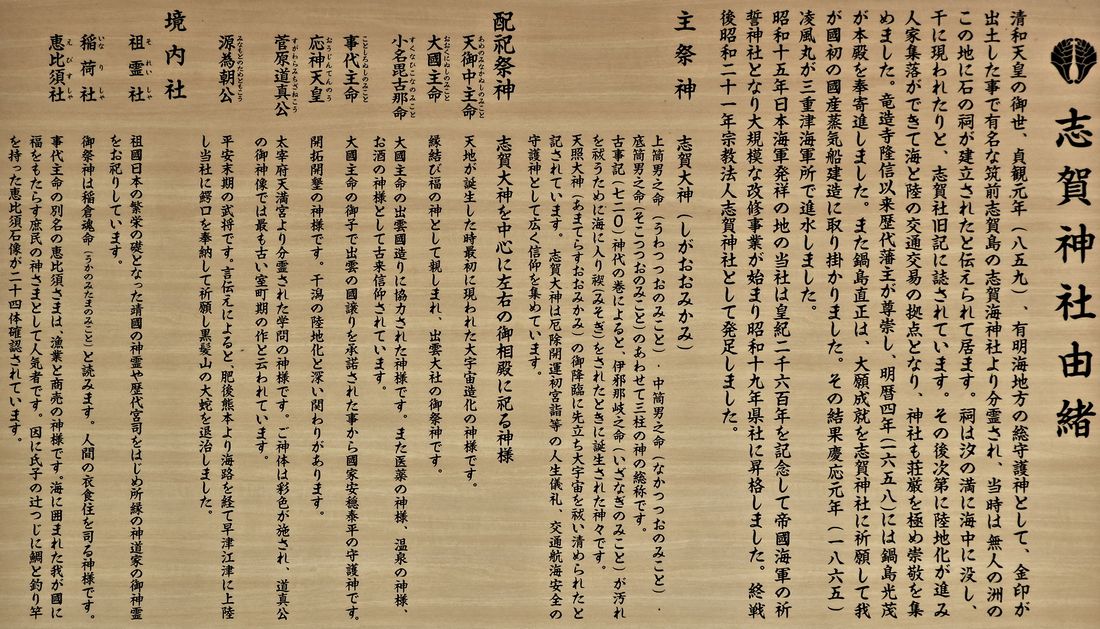 志賀神社由緒
清和天皇の御世、貞観元年（八五九）、有明海地方の総守護神として、金印が
出土した事で有名な筑前志賀島の志賀海神社より分霊され、当時は無人の洲の
この地に石の祠が建立されたと伝えられて居ます。祠は汐の満に海中に没し、
干に現われたりと、志賀社旧記に誌されています。その後次第に陸地化が進み
人家集落ができて海と陸の交通交易の拠点となり、神社も荘厳を極め崇敬を集
めました。竜造寺隆信以来歴代藩主が尊崇し、明暦四年（一六五八）には鍋島光茂
が本殿を奉寄進しました。また鍋島直正は、大願成就を志賀神社に祈願して我
が國初の國産蒸気船建造に取り掛かりました。その結果慶応元年（一八六五）
凌風丸が三重津海軍所で進水しました。
昭和十五年日本海軍発祥の地の当社は皇紀二千六百年を記念して帝國海軍の祈
誓神社となり大規模な改修事業が始まり昭和十九年県社に昇格しました。終戦
後昭和二十一年宗教法人志賀神社として発足しました。
主祭神
志賀大神（しがおおみかみ）
上筒男之命（うわつつおのみこと）・中筒男之命（なかつつおのみこと）・
底筒男之命（そこつつおのみこと）のあわせて三柱の神の総称です。
古事記（七二〇）神代の巻によると、伊邪那岐之命（いざなぎのみこと）が汚れ
を祓うために海に入り禊（みそぎ）をされたときに誕生された神々です。
天照大神（あまてらすおおみかみ）の御降臨に先立ち大宇宙を祓い清められたと
記されています。志賀大神は厄除開運初宮詣等の人生儀礼、交通航海安全の
守護神として広く信仰を集めています。
配祀祭神
志賀大神を中心に左右の御相殿に祀る神様
天御中主命
あめのみなかぬしのみこと
天地が誕生した時最初に現われた大宇宙造化の神様です。
大國主命
おおくにぬしのみこと
縁結び福の神として親しまれ、出雲大社の御祭神です。
小名毘古那命
すくなひこなのみこと
大國主命の出雲國造りに協力された神様です。また医薬の神様、温泉の神様、
お酒の神様として古来信仰されています。
事代主命
ことしろぬしのみこと
大國主命の御子で出雲の國譲りを承諾された事から國家安穏泰平の守護神です。
応神天皇
おうじんてんのう
開拓開墾の神様です。干潟の陸地化と深い関わりがあります。
菅原道真公
すがわらみちざねこう
太宰府天満宮より分霊された学問の神様です。ご神体は彩色が施され、道真公
の御神像では最も古い室町期の作と云われています。
源為朝公
みなもとのためともこう
平安末期の武将です。言伝えによると、肥後熊本より海路を経て早津江津に上陸
し当社に鰐口を奉納して祈願し黒髪山の大蛇を退治しました。
境内社
祖霊社
それいしゃ
祖國日本の繁栄の礎となった靖國の神霊や歴代宮司をはじめ所縁の神道家の御神霊
をお祀りしています。
稲荷社
いなりしゃ
御祭神は稲倉魂命（うかのみたまのみこと）と読みます。人間の衣食住を司る神様です。
恵比須社
えびすしゃ
事代主命の別名の恵比須さまは、漁業と商売の神様です。海に囲まれた我が國に
福をもたらす庶民の神さまとして人気者です。因に氏子の辻つじに鯛と釣り竿
を持った恵比須石像が二十四体確認されています。